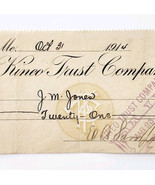 Mo. Oct 31 1914
Kinco Trust Compan
J. M. Jones
Twenty-One
TRUST COMPANY